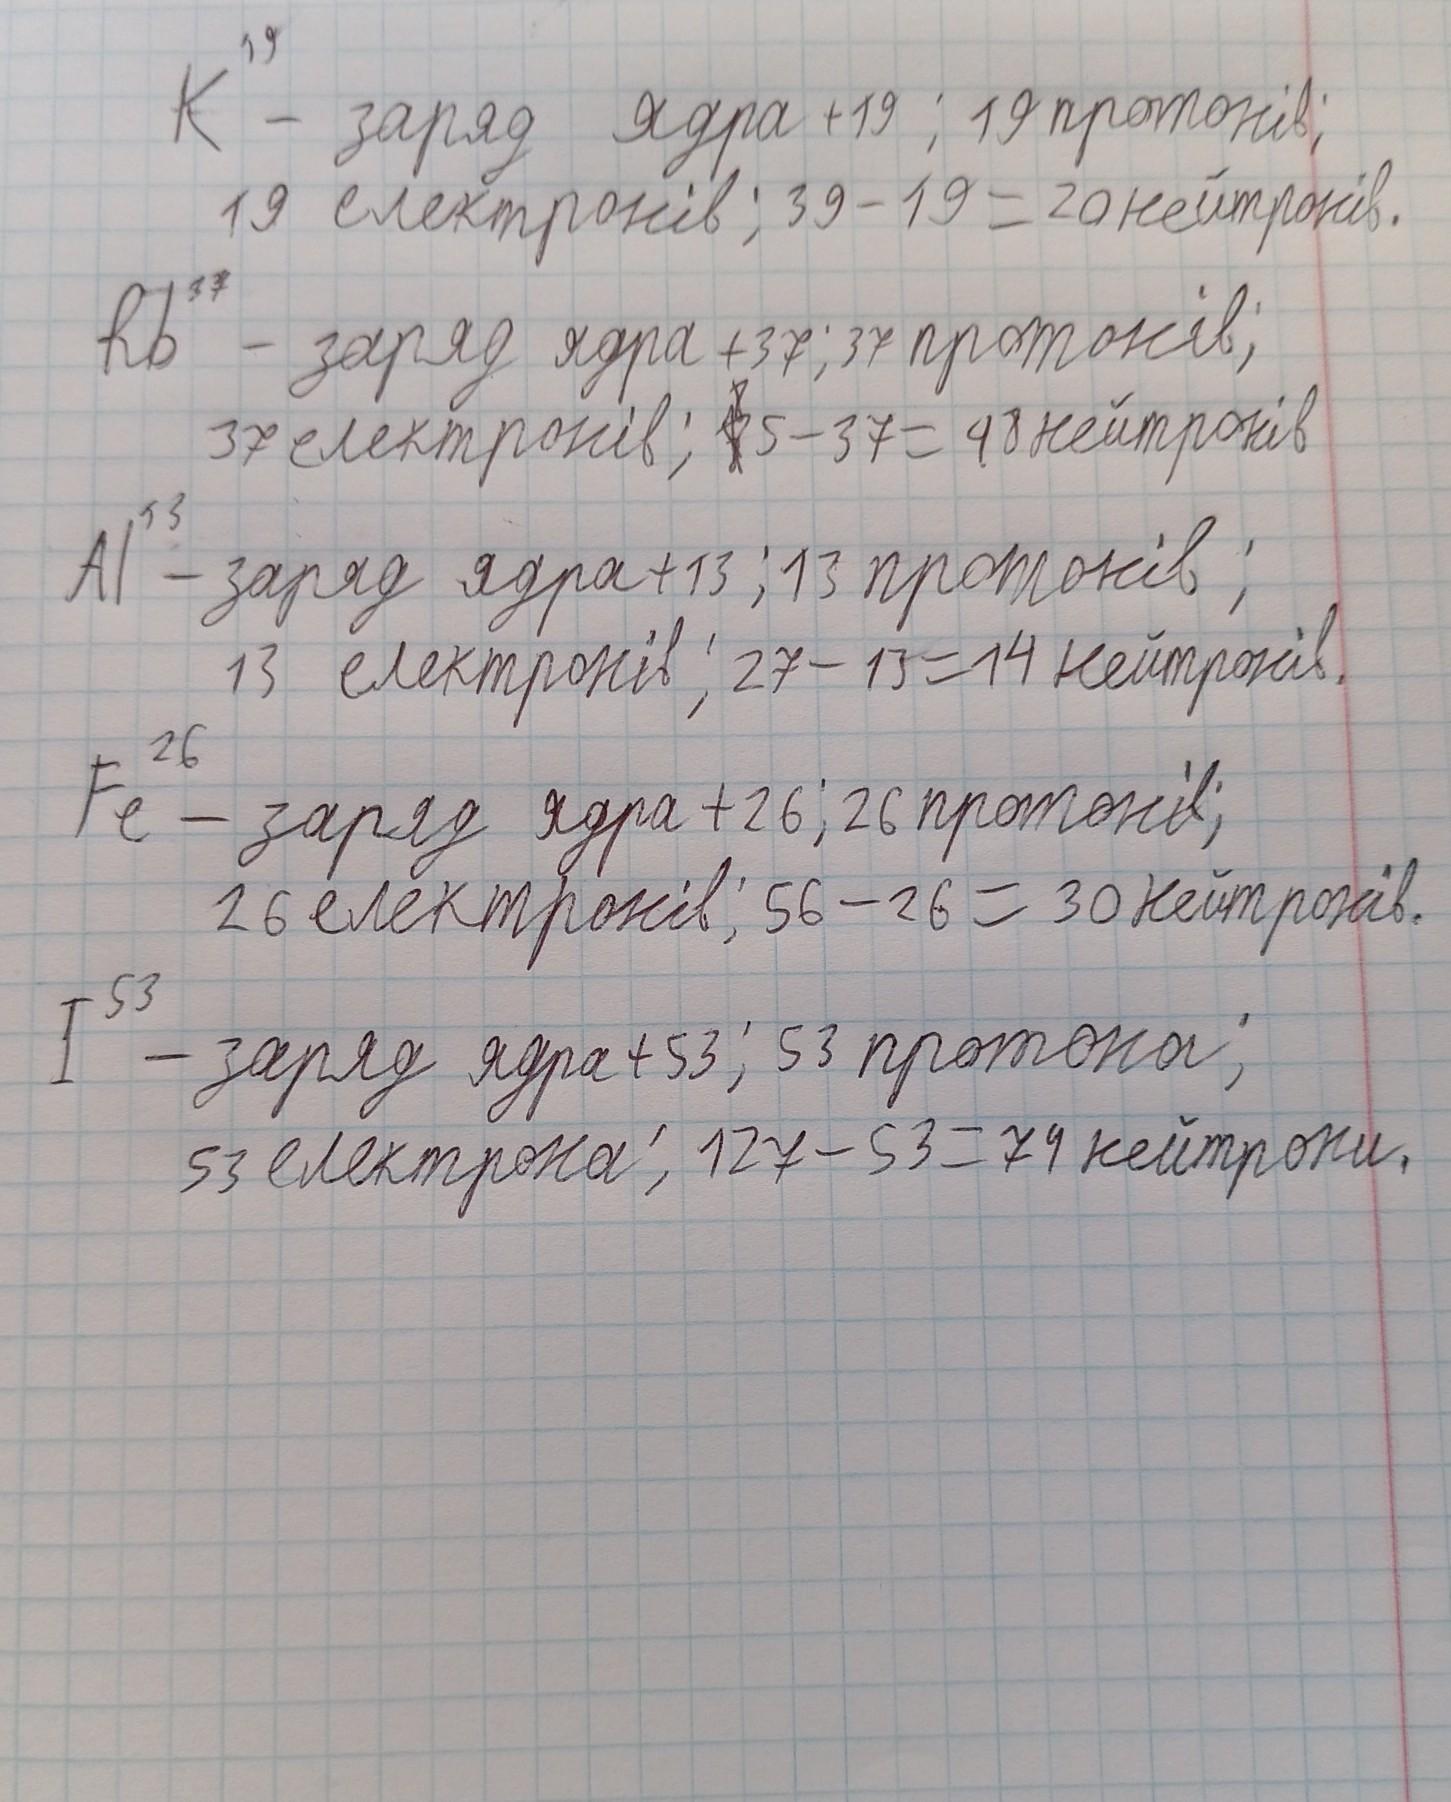 K¹⁹ – заряд ядра +19; 19 протонів;
19 електронів; 39 – 19 = 20 нейтронів.
Rb³⁷ – заряд ядра +37; 37 протонів;
37 електронів; 5 – 37 = 48 нейтронів
Al¹³ – заряд ядра +13; 13 протонів;
13 електронів; 27 – 13 = 14 нейтронів.
Fe²⁶ – заряд ядра +26; 26 протонів;
26 електронів; 56 – 26 = 30 нейтронів.
I⁵³ – заряд ядра +53; 53 протона;
53 електрона; 127 – 53 = 74 нейтрони.